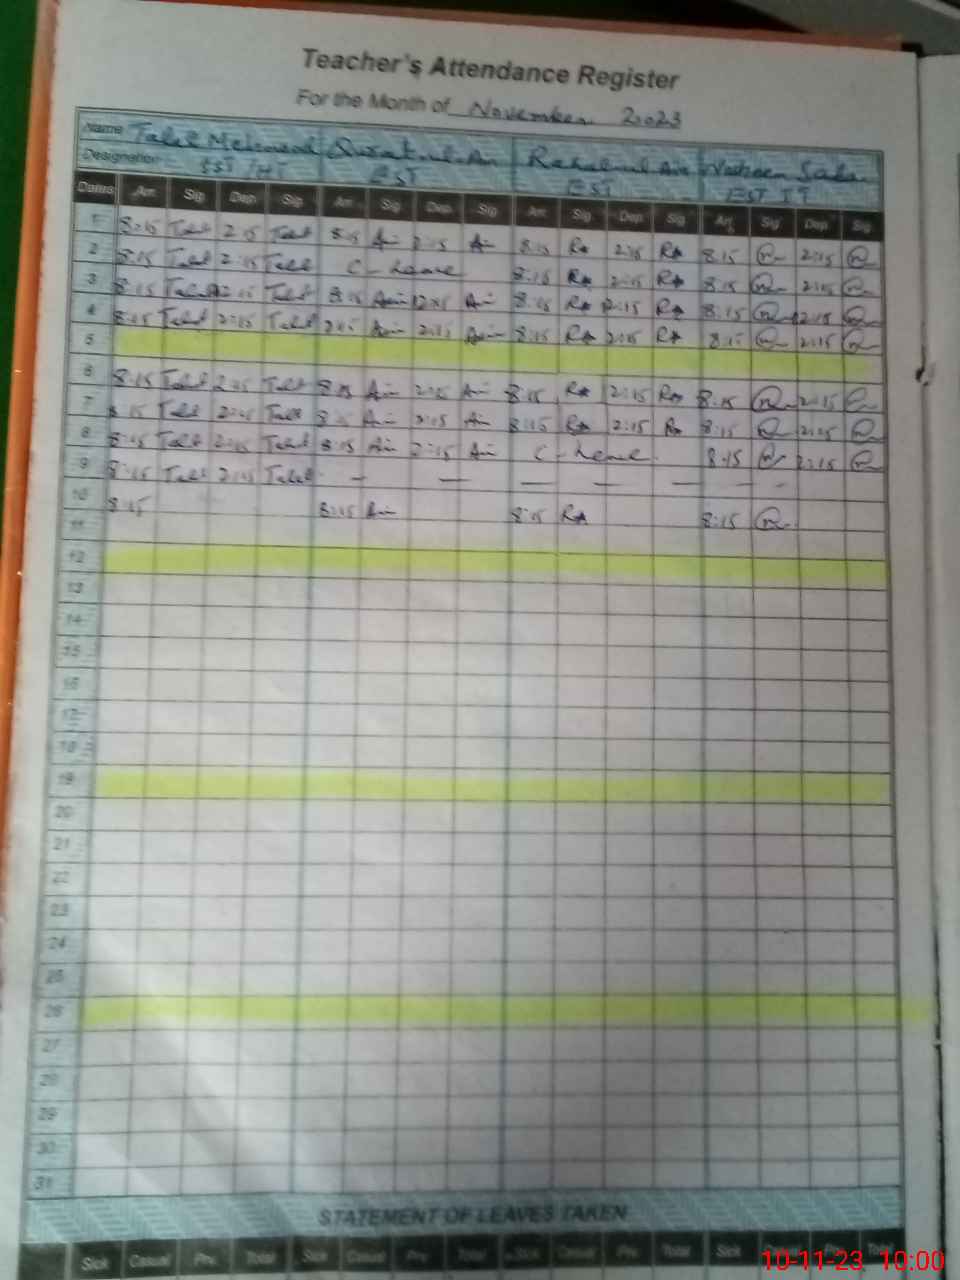 Teacher's Attendance Register
For the Month of November 2023
Name Talat Mehmood Rahat ul Ain
Designation SST / HT EST EST EST IT
Dates Arr. Sig Dep. Sig. Arr. Sig Dep. Sig Arr. Sig Dep. Sig Arr. Sig Dep. Sig
1 8:15 Talat 2:15 Talat 8:15 Ain 2:15 Ain 8:15 RA 2:15 RA 8:15 2:15
2 8:15 Talat 2:15 Talat C-leave 8:15 RA 2:15 RA 8:15 2:15
3 8:15 Talat 12:15 Talat 8:15 Ain 12:15 Ain 8:15 RA 12:15 RA 8:15 12:15
4 8:15 Talat 2:15 Talat 8:15 Ain 2:15 Ain 8:15 RA 2:15 RA 8:15 2:15
5
6 8:15 Talat 2:15 Talat 8:15 Ain 2:15 Ain 8:15 RA 2:15 RA 8:15 2:15
7 8:15 Talat 2:15 Talat 8:15 Ain 2:15 Ain 8:15 RA 2:15 RA 8:15 2:15
8 8:15 Talat 2:15 Talat 8:15 Ain 2:15 Ain C-leave. 8:15 2:15
9 8:15 Talat 2:15 Talat - — — — — — - -
10 8:15 8:15 Ain 8:15 RA 8:15
11
12
13
14
15
16
17
18
19
20
21
22
23
24
25
26
27
28
29
30
31
STATEMENT OF LEAVES TAKEN
Sick Casual Prv. Total Sick Casual Prv. Total Sick Casual Prv. Total Sick Casual Prv. Total
10-11-23 10:00